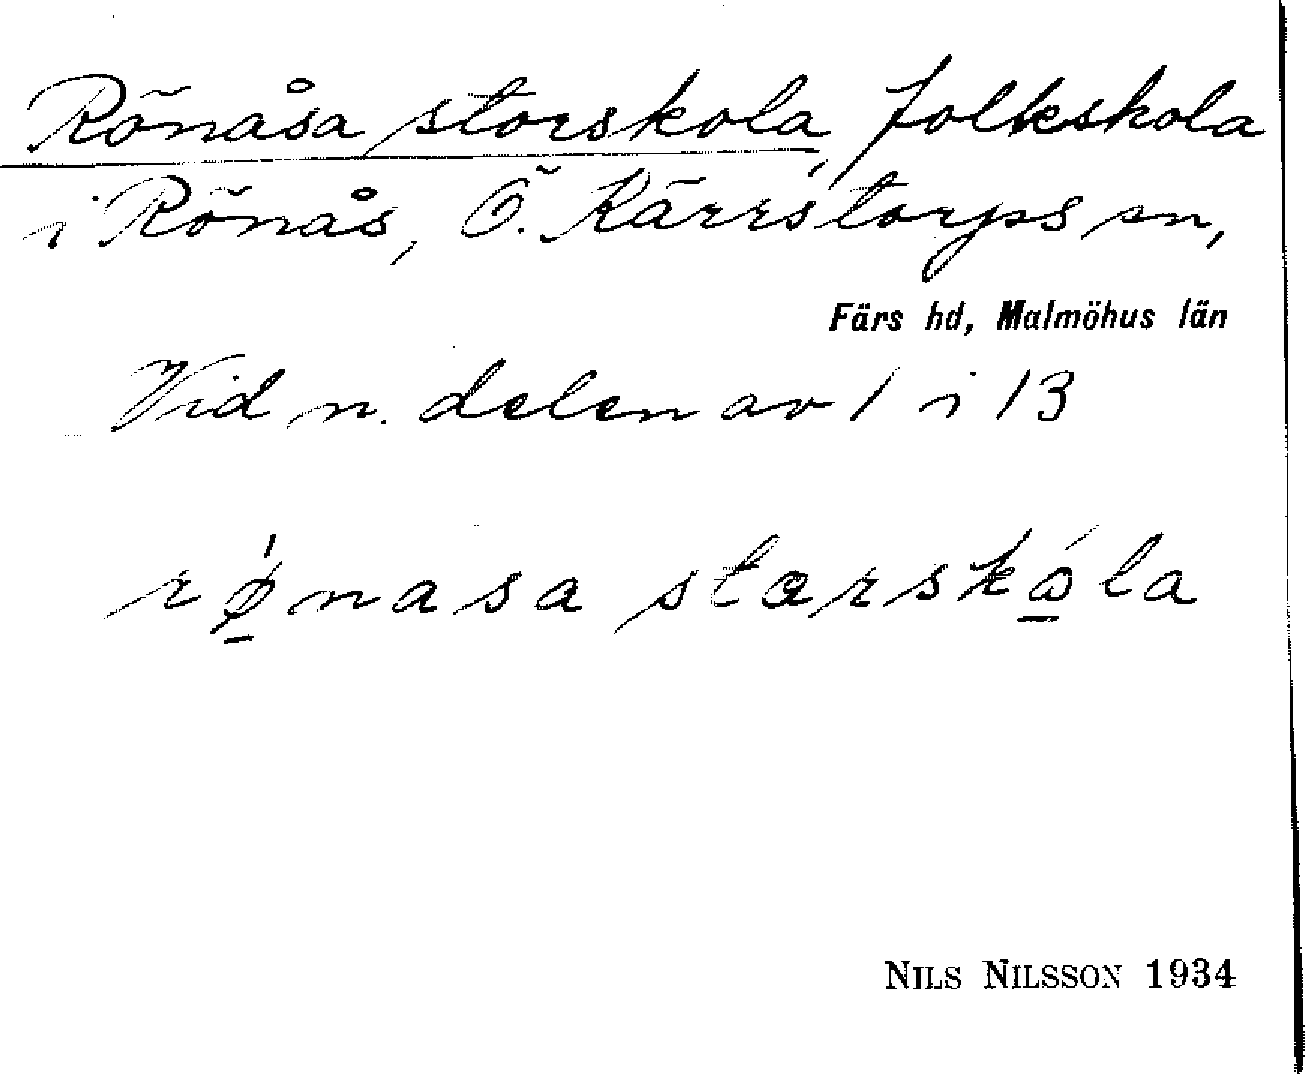 Rönåsa storskola, folkskola
i Rönås, Ö. Kärrstorps sn,
Färs hd, Malmöhus län
Vid n. delen av 1 i 13
rǿ̱nasa stœrskó̱la
NILS NILSSON 1934